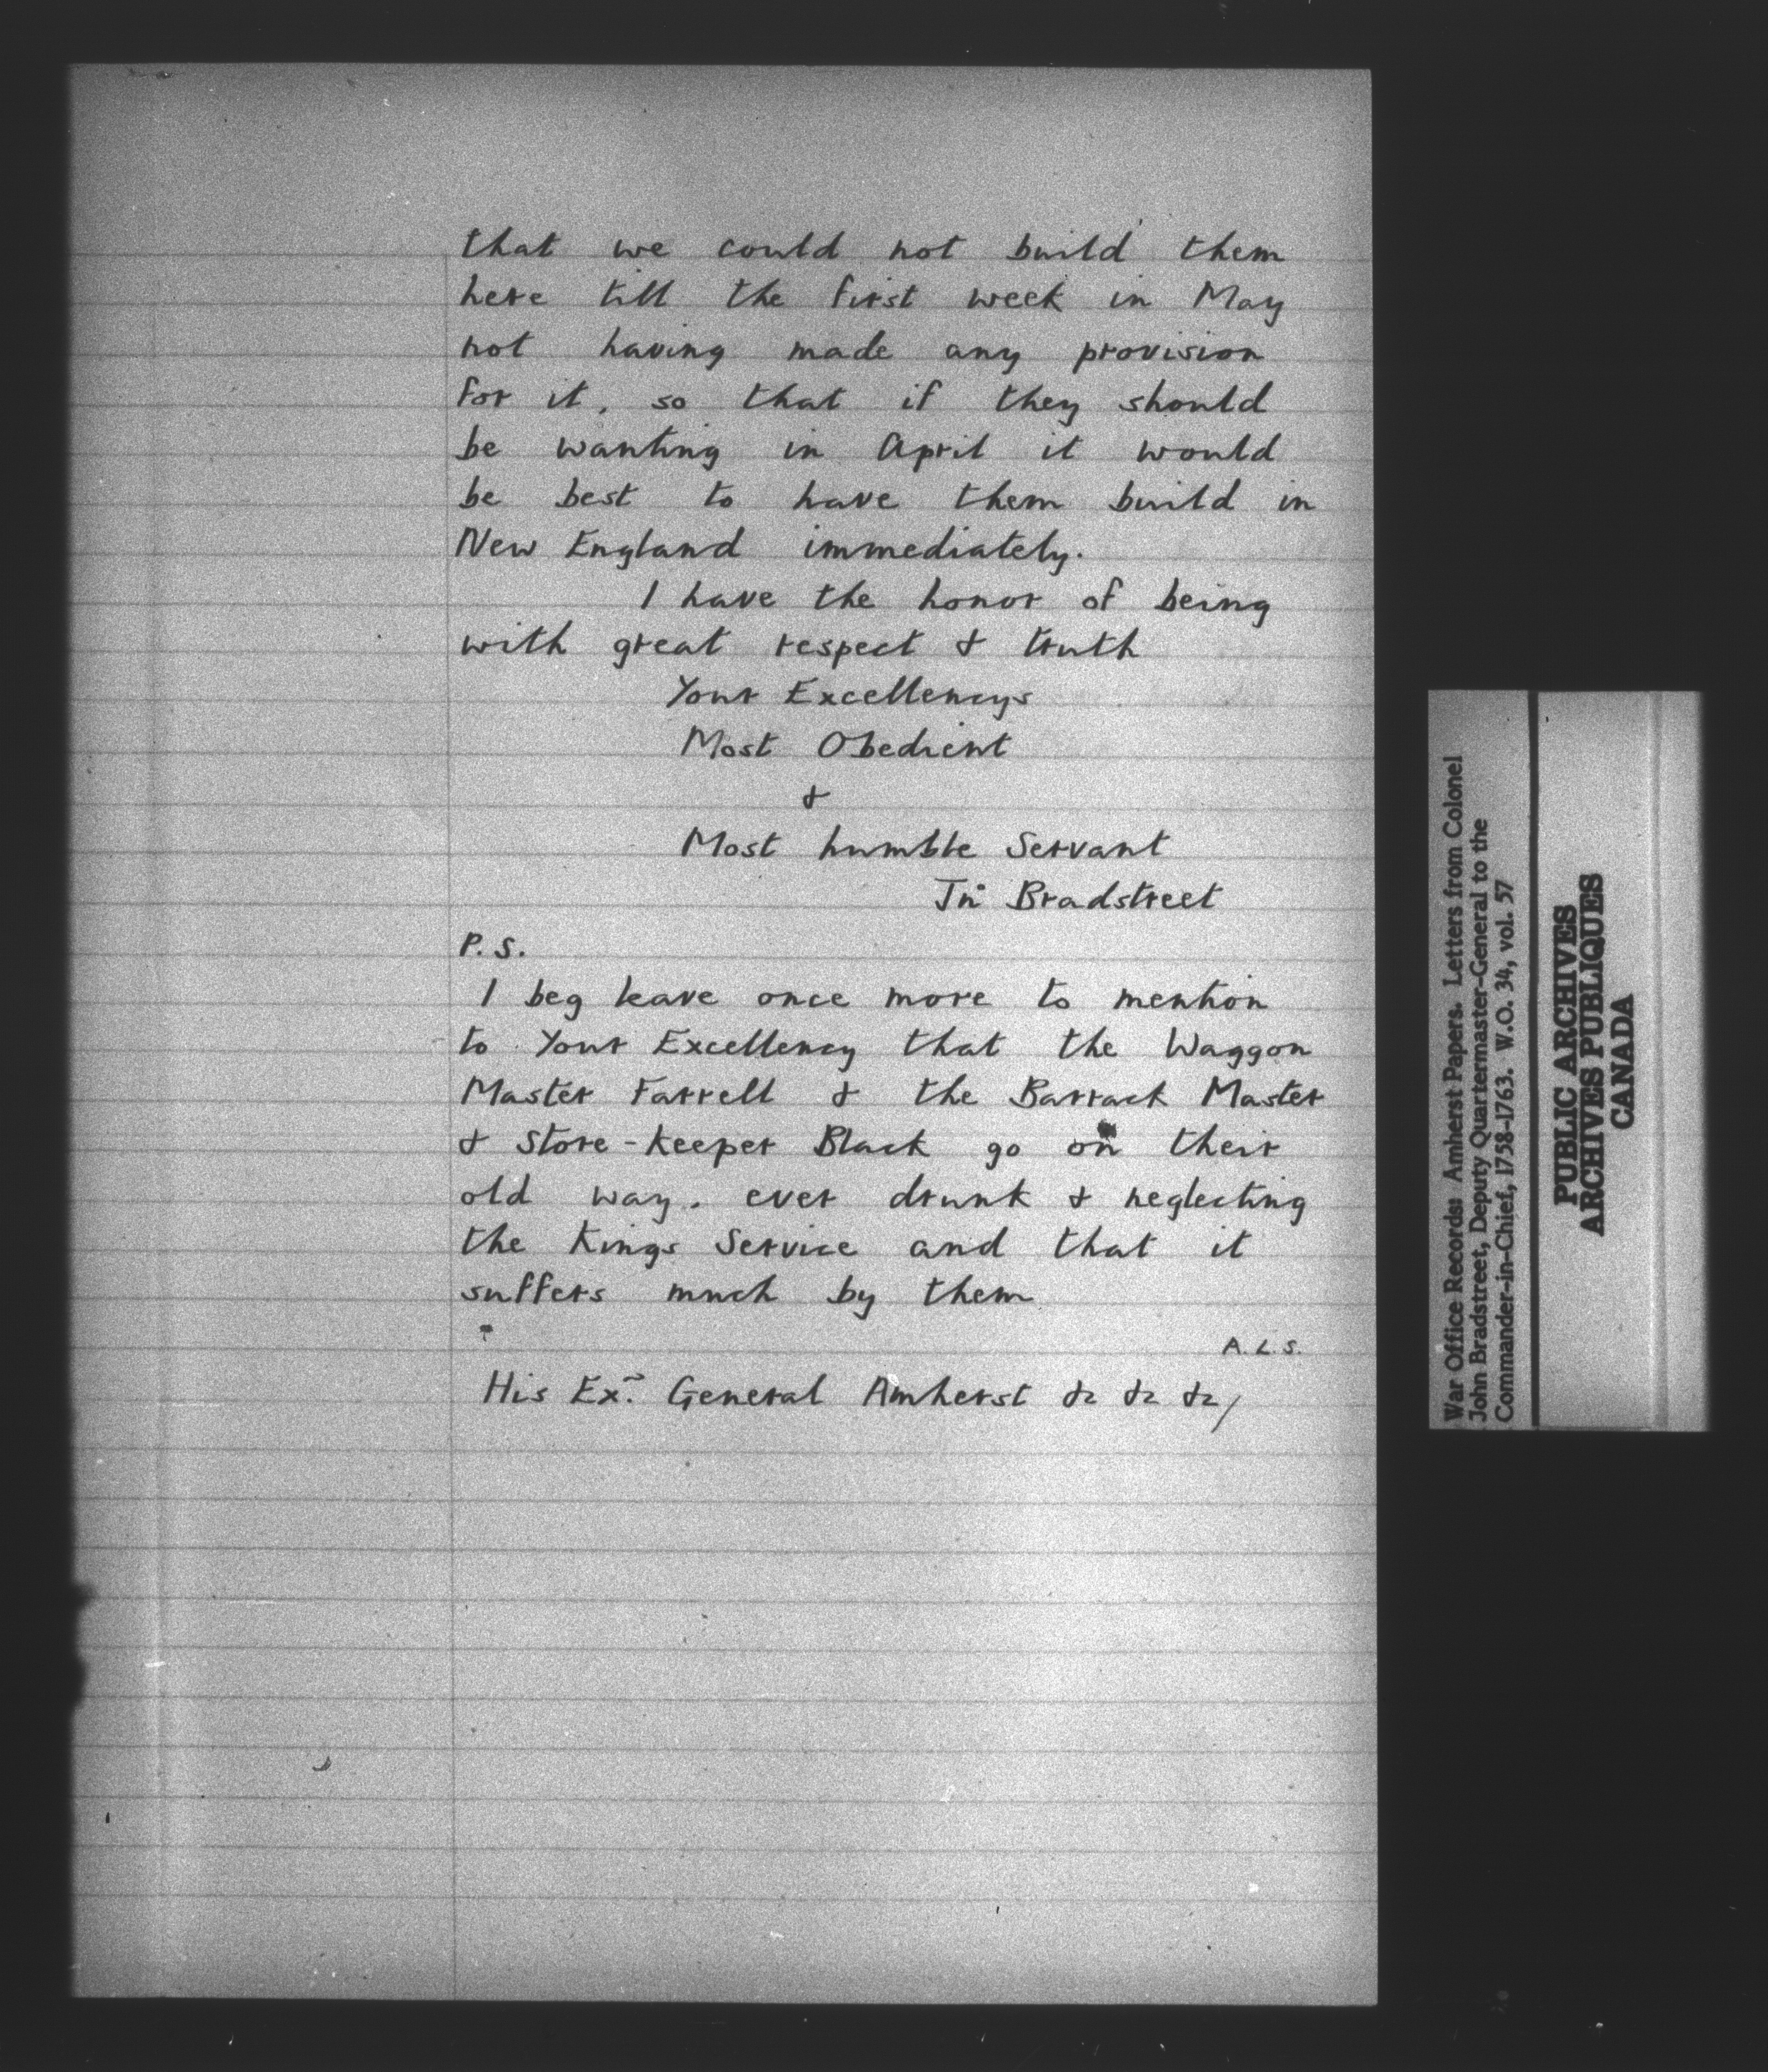 that we could not build them
here till the first week in May
not having made any provision
for it, so that if they should
be wanting in April it would
be best to have them build in
New England immediately.
I have the honor of being
with great respect & truth
Your Excellencys
Most Obedient
&
Most humble Servant
Jnº Bradstreet
P.S.
I beg leave once more to mention
to Your Excellency that the Waggon
Master Farrell & the Barrack Master
& Store-keeper Black go on their
old way, ever drunk & neglecting
the Kings Service and that it
suffers much by them
A.L.S.
His Exy. General Amherst &c &c &c/
War Office Records: Amherst Papers. Letters from Colonel
John Bradstreet, Deputy Quartermaster-General to the
Commander-in-Chief, 1758-1763. W.O. 34, vol. 57
PUBLIC ARCHIVES
ARCHIVES PUBLIQUES
CANADA